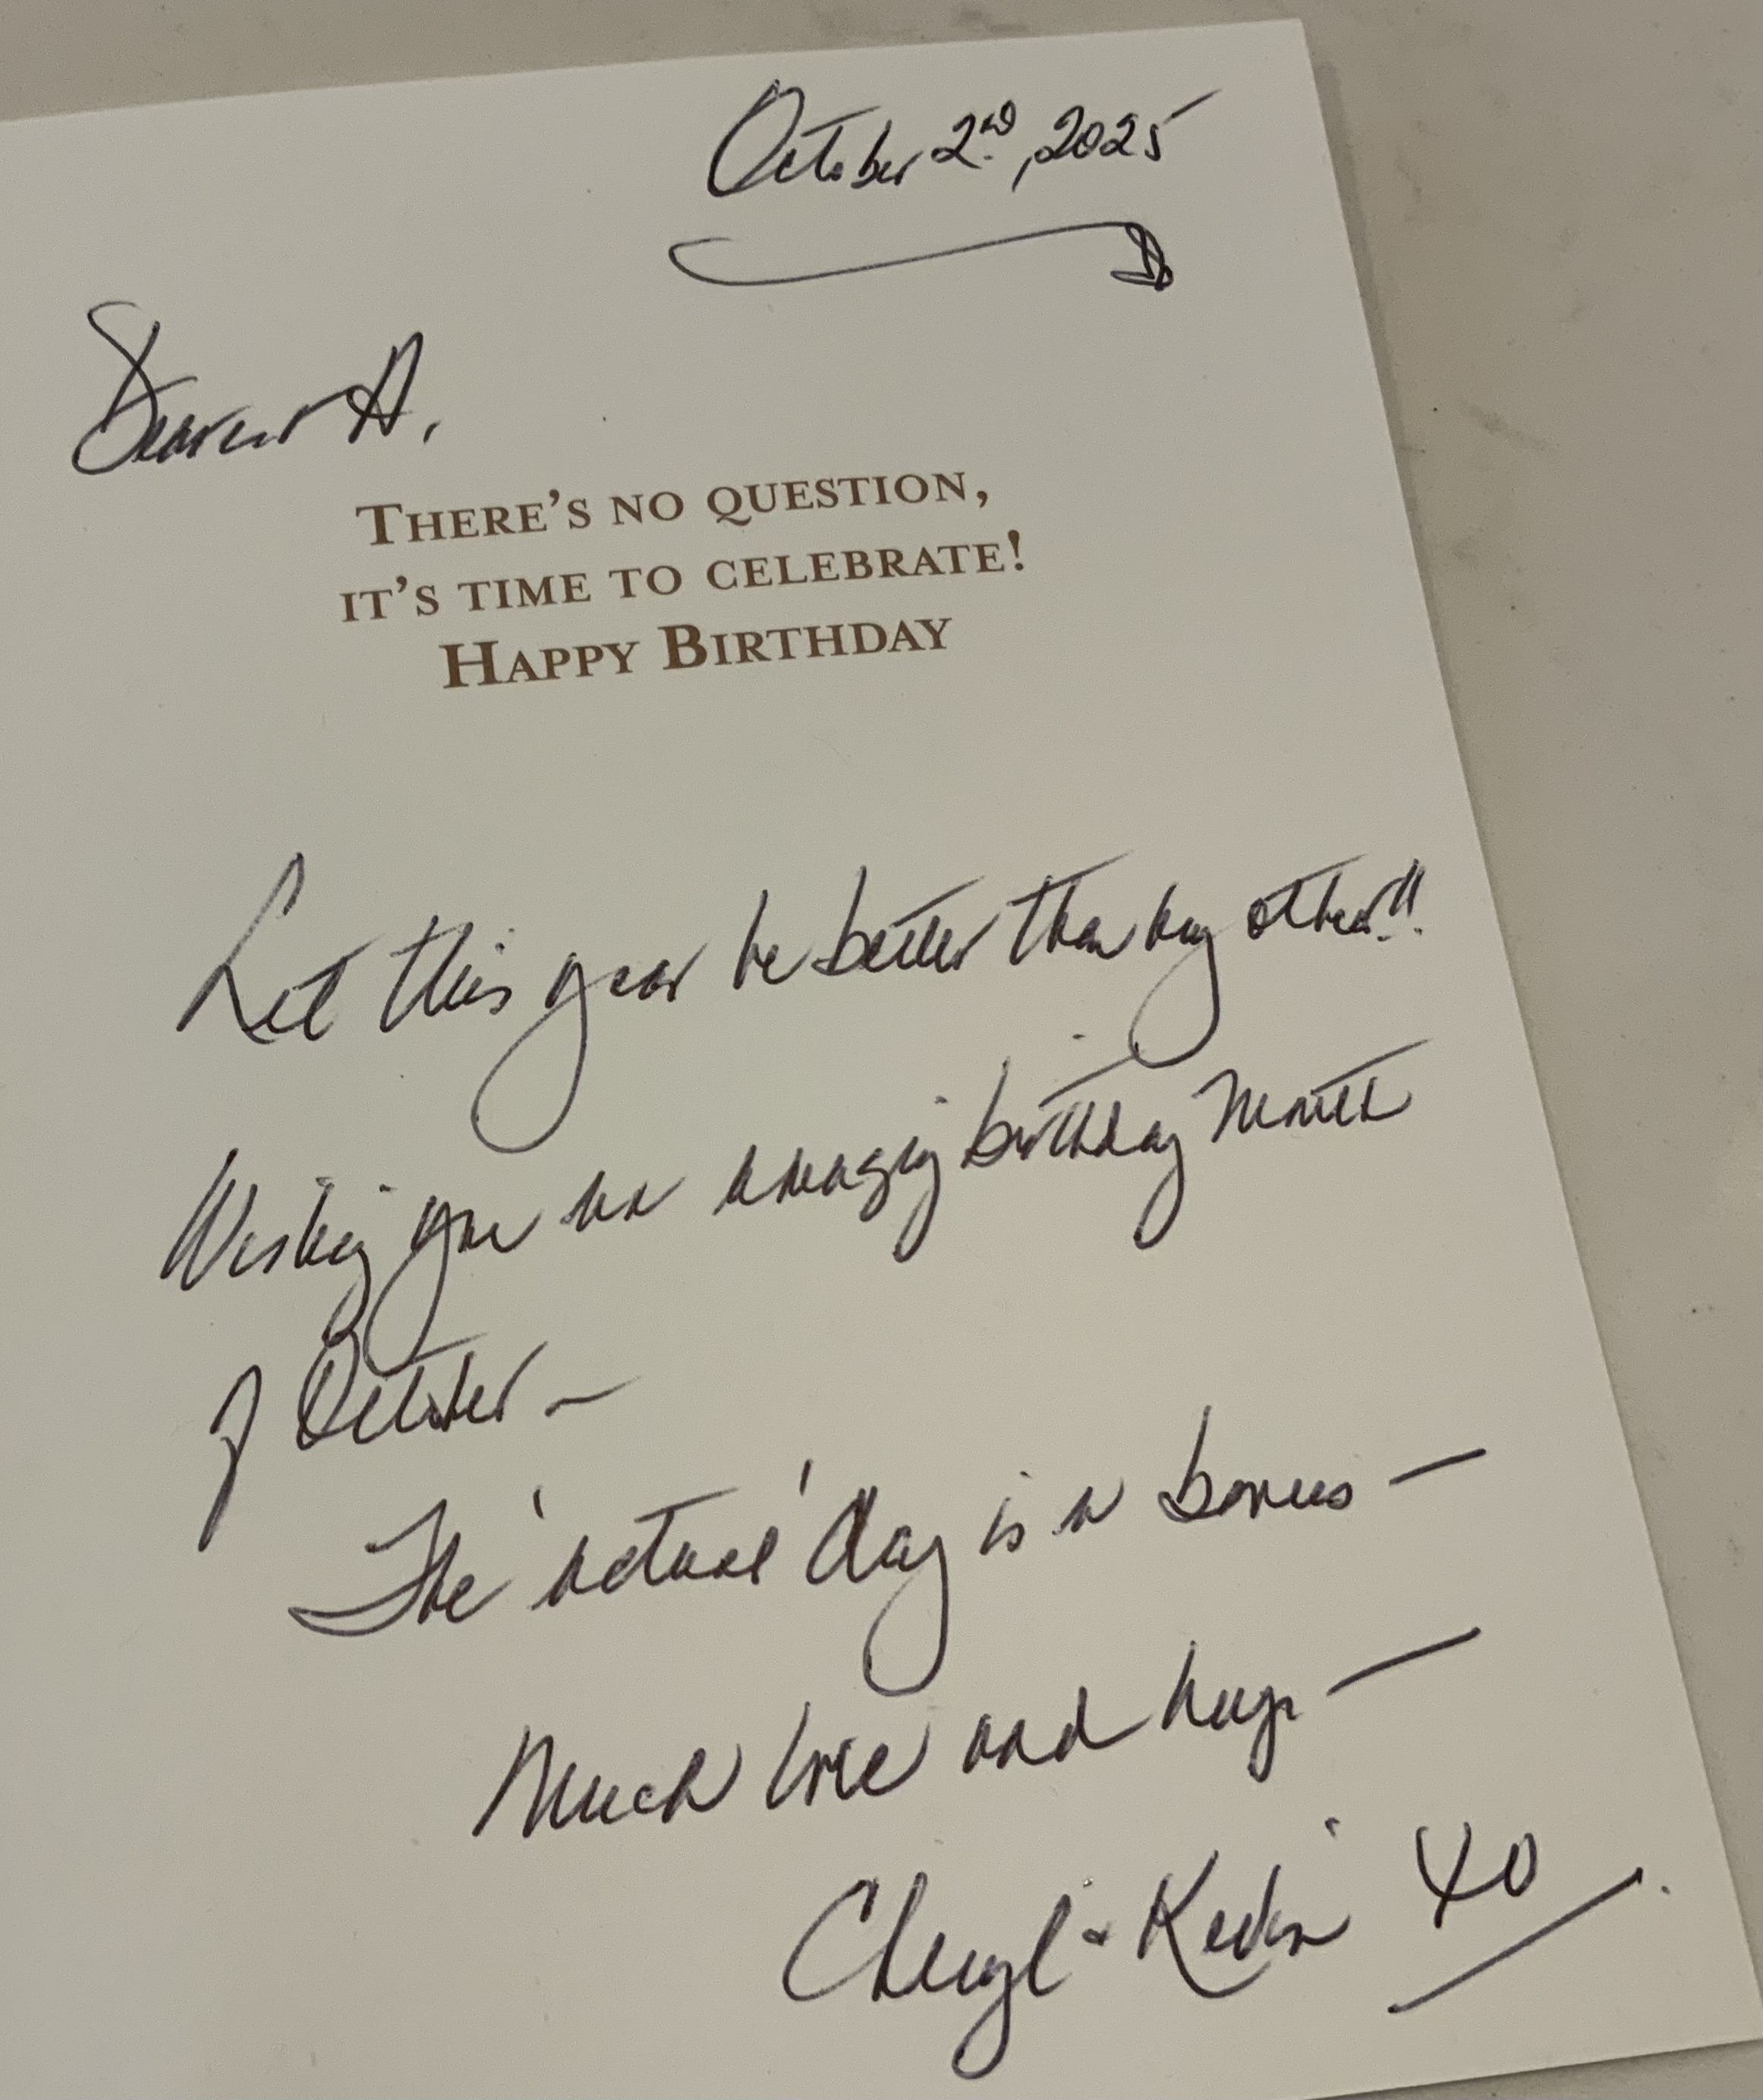 October 2nd, 2025
Dearest A,
THERE'S NO QUESTION,
IT'S TIME TO CELEBRATE!
HAPPY BIRTHDAY
Let this year be better than any other!!
Wishing you an amazing birthday month
of October –
The 'actual' day is a bonus –
Much love and hugs –
Cheryl & Kevin XO